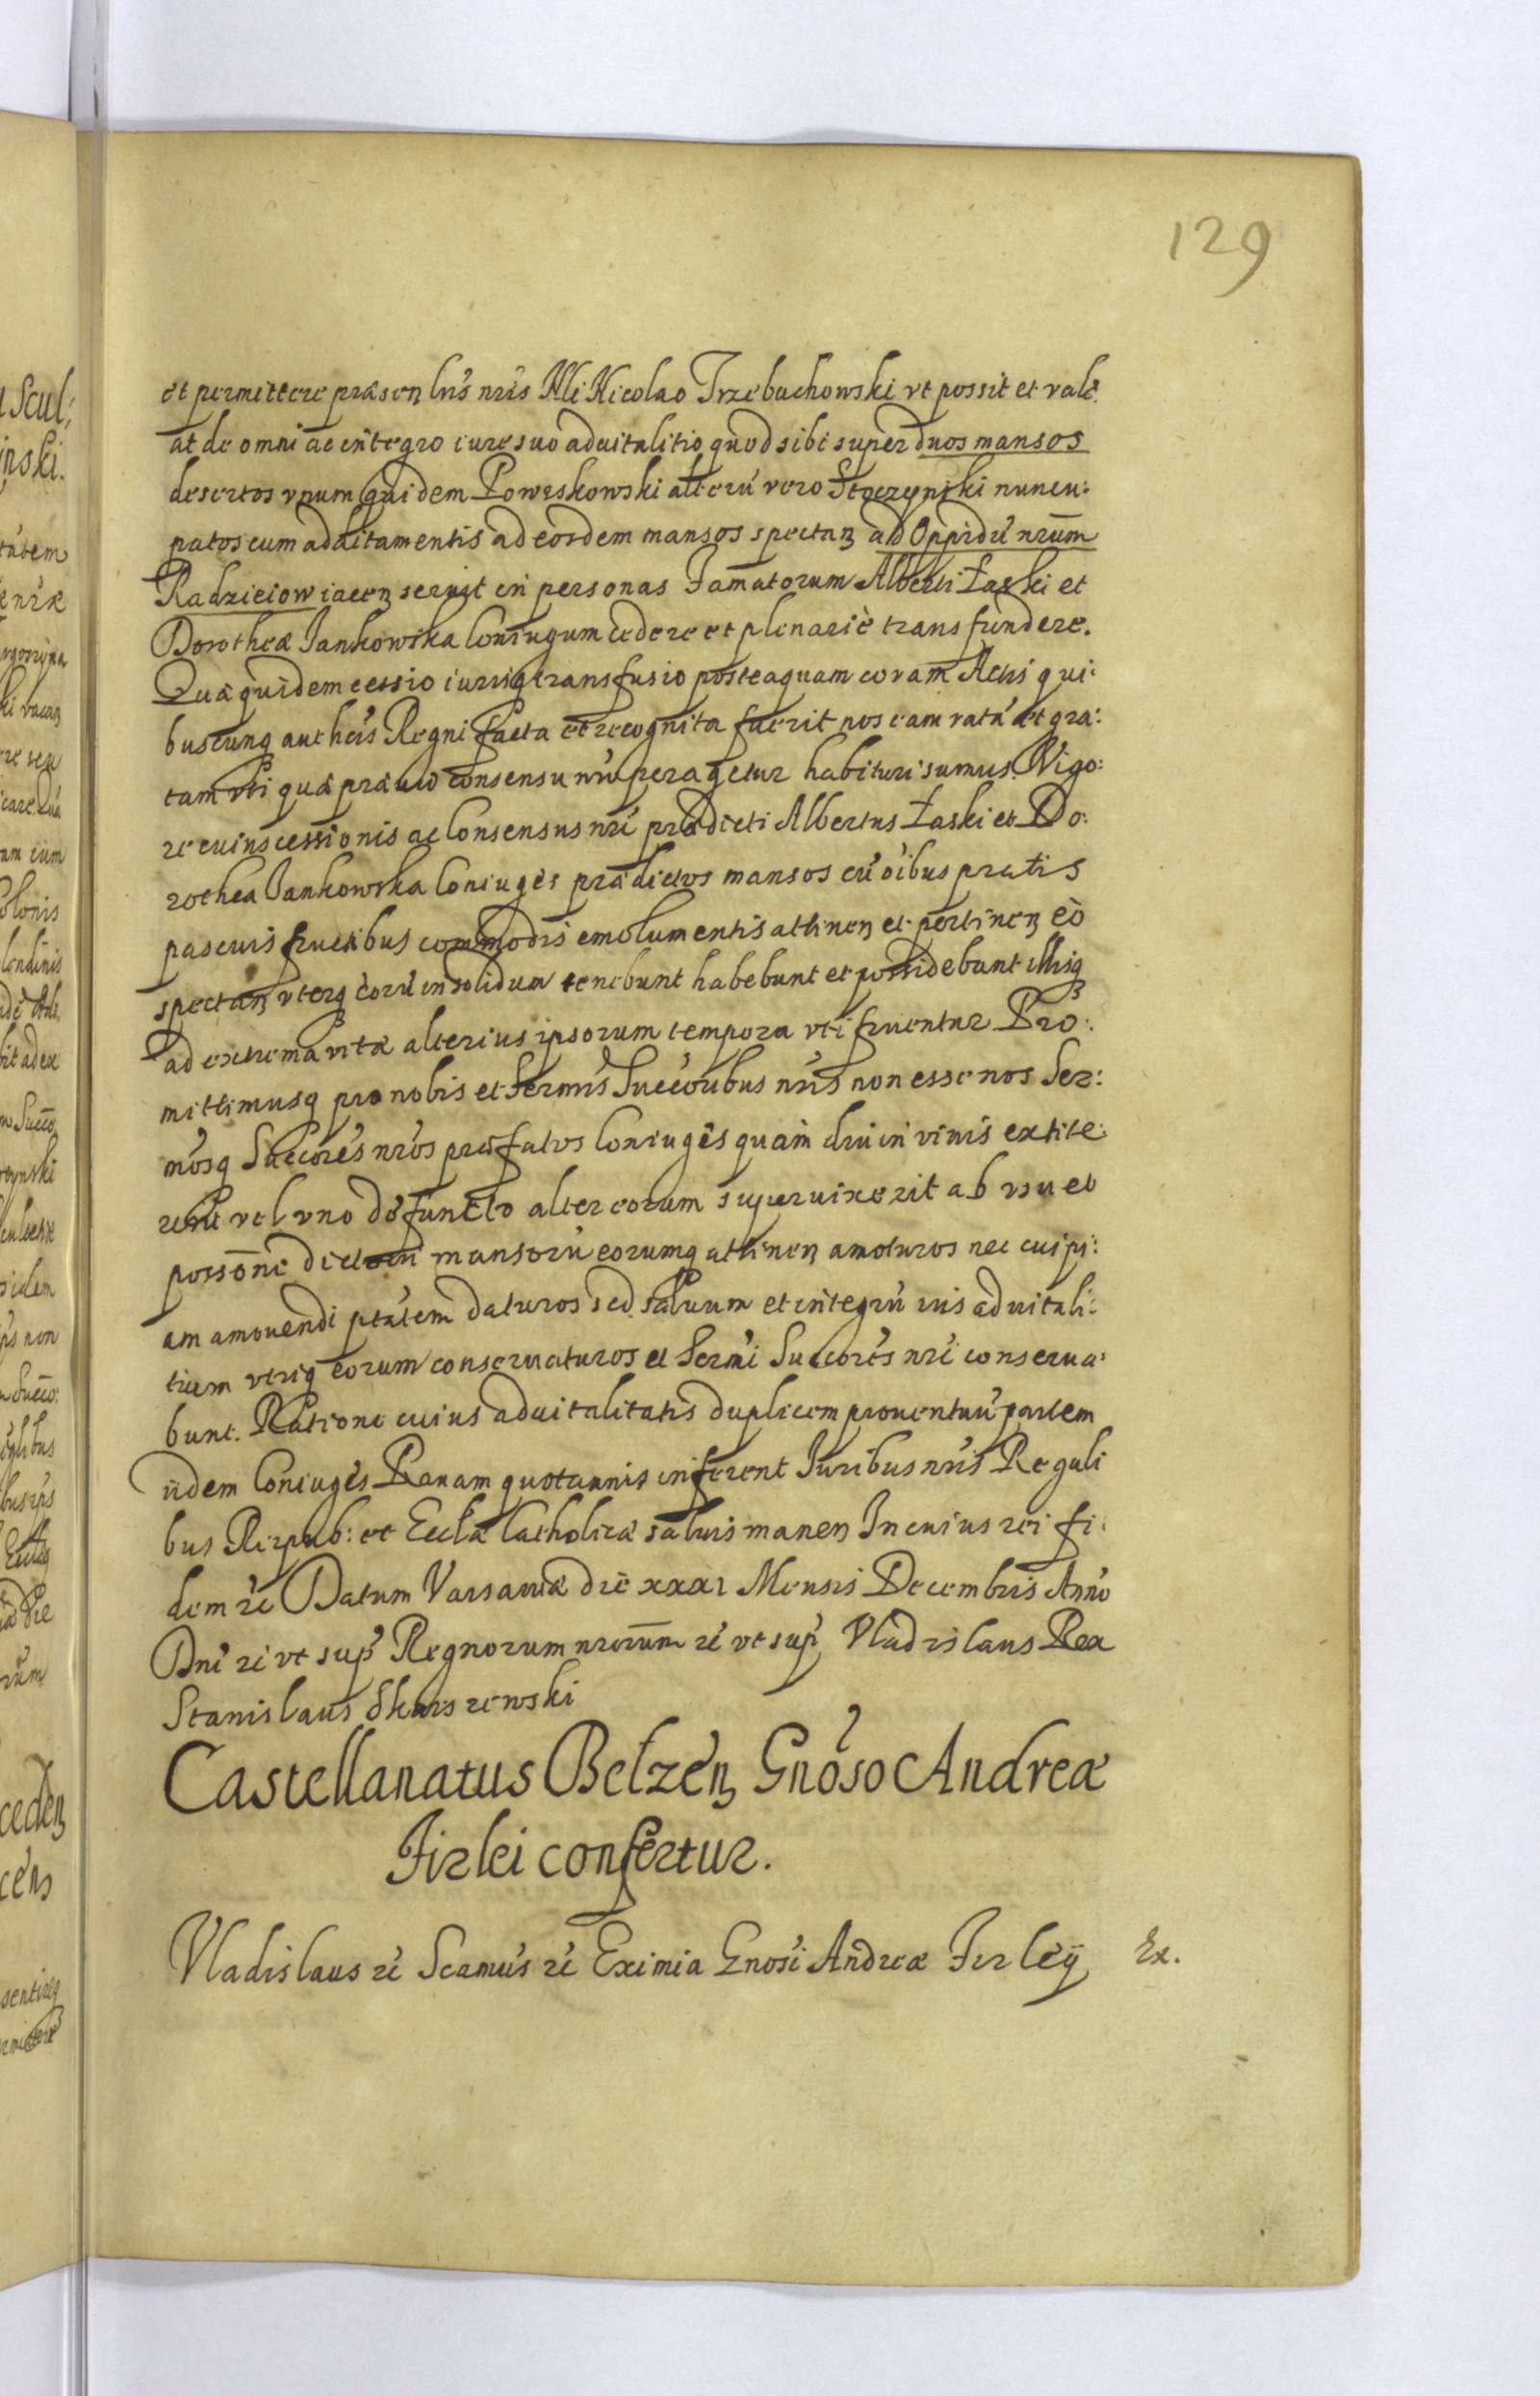 129
et permittere præsenƷ lris nris Nli Nicolao Trzebuchowski vt possit et vale:
at de omni ac integro iure suo aduitalitio quod sibi super duos mansos
desertos vnum quidem Poweskowski alterū vero Stoczynski nuncu:
patos cum additamentis ad eosdem mansos spectanƷ ad Oppidū nrum
Radzieiow iacenƷ seruit in personas Famatorum Alberti Łaski et
Dorotheæ Jankowska Coniugum cedere et plenarie transfundere.
Quæ quidem cessio iurisq transfusio posteaquam coram Actis qui:
buscunq authcis Regni facta et recognita fuerit nos eam ratā et gra:
tam vti quæ præuio consensu nro peragetur habituri sumus. Vigo:
re cuius cessionis ac Consensus nri prædicti Albertus Łaski et Do:
rothea Jankowska Coniuges prædictos mansos cū oibus pratis
pascuis fructibus commodis emolumentis attinenƷ et pertinenƷ eo
spectanƷ vterq eorū in solidum tenebunt habebunt et possidebunt illisq
ad extrema vitæ alterius ipsorum tempora vti fruentur Pro:
mittimusq pro nobis et Sermis Succoribus nris non esse nos Ser:
mosq Succores nros præfatos Coniuges quam diu in viuis extite:
rint vel vno defuncto alter eorum superuixerit ab vsu et
possone dictorū mansorū eorumq attinenƷ amoturos nec cuipi:
am amouendi ptatem daturos sed saluum et integrū ius aduitali:
tium vtriq eorum conseruaturos et Sermi Succores nri conserua:
bunt. Ratione cuius aduitalitatis duplicem prouentuū partem
iidem Coniuges Rauam quotannis inferent Juribus nris Regali
bus Reipub: et Eccla Catholicæ saluis manenƷ In cuius rei fi:
dem rc Datum Varsauiæ die xxxi Mensis Decembris Anno
Dni rc vt sup Regnorum nrorum rc vt sup Vladislaus Rex
Stanislaus Skarszewski
Castellanatus BelzenƷ Gnoso Andreæ
Firlei confertur.
Vladislaus rc Scamus rc Eximia Gnosi Andreæ Firleÿ Ex.